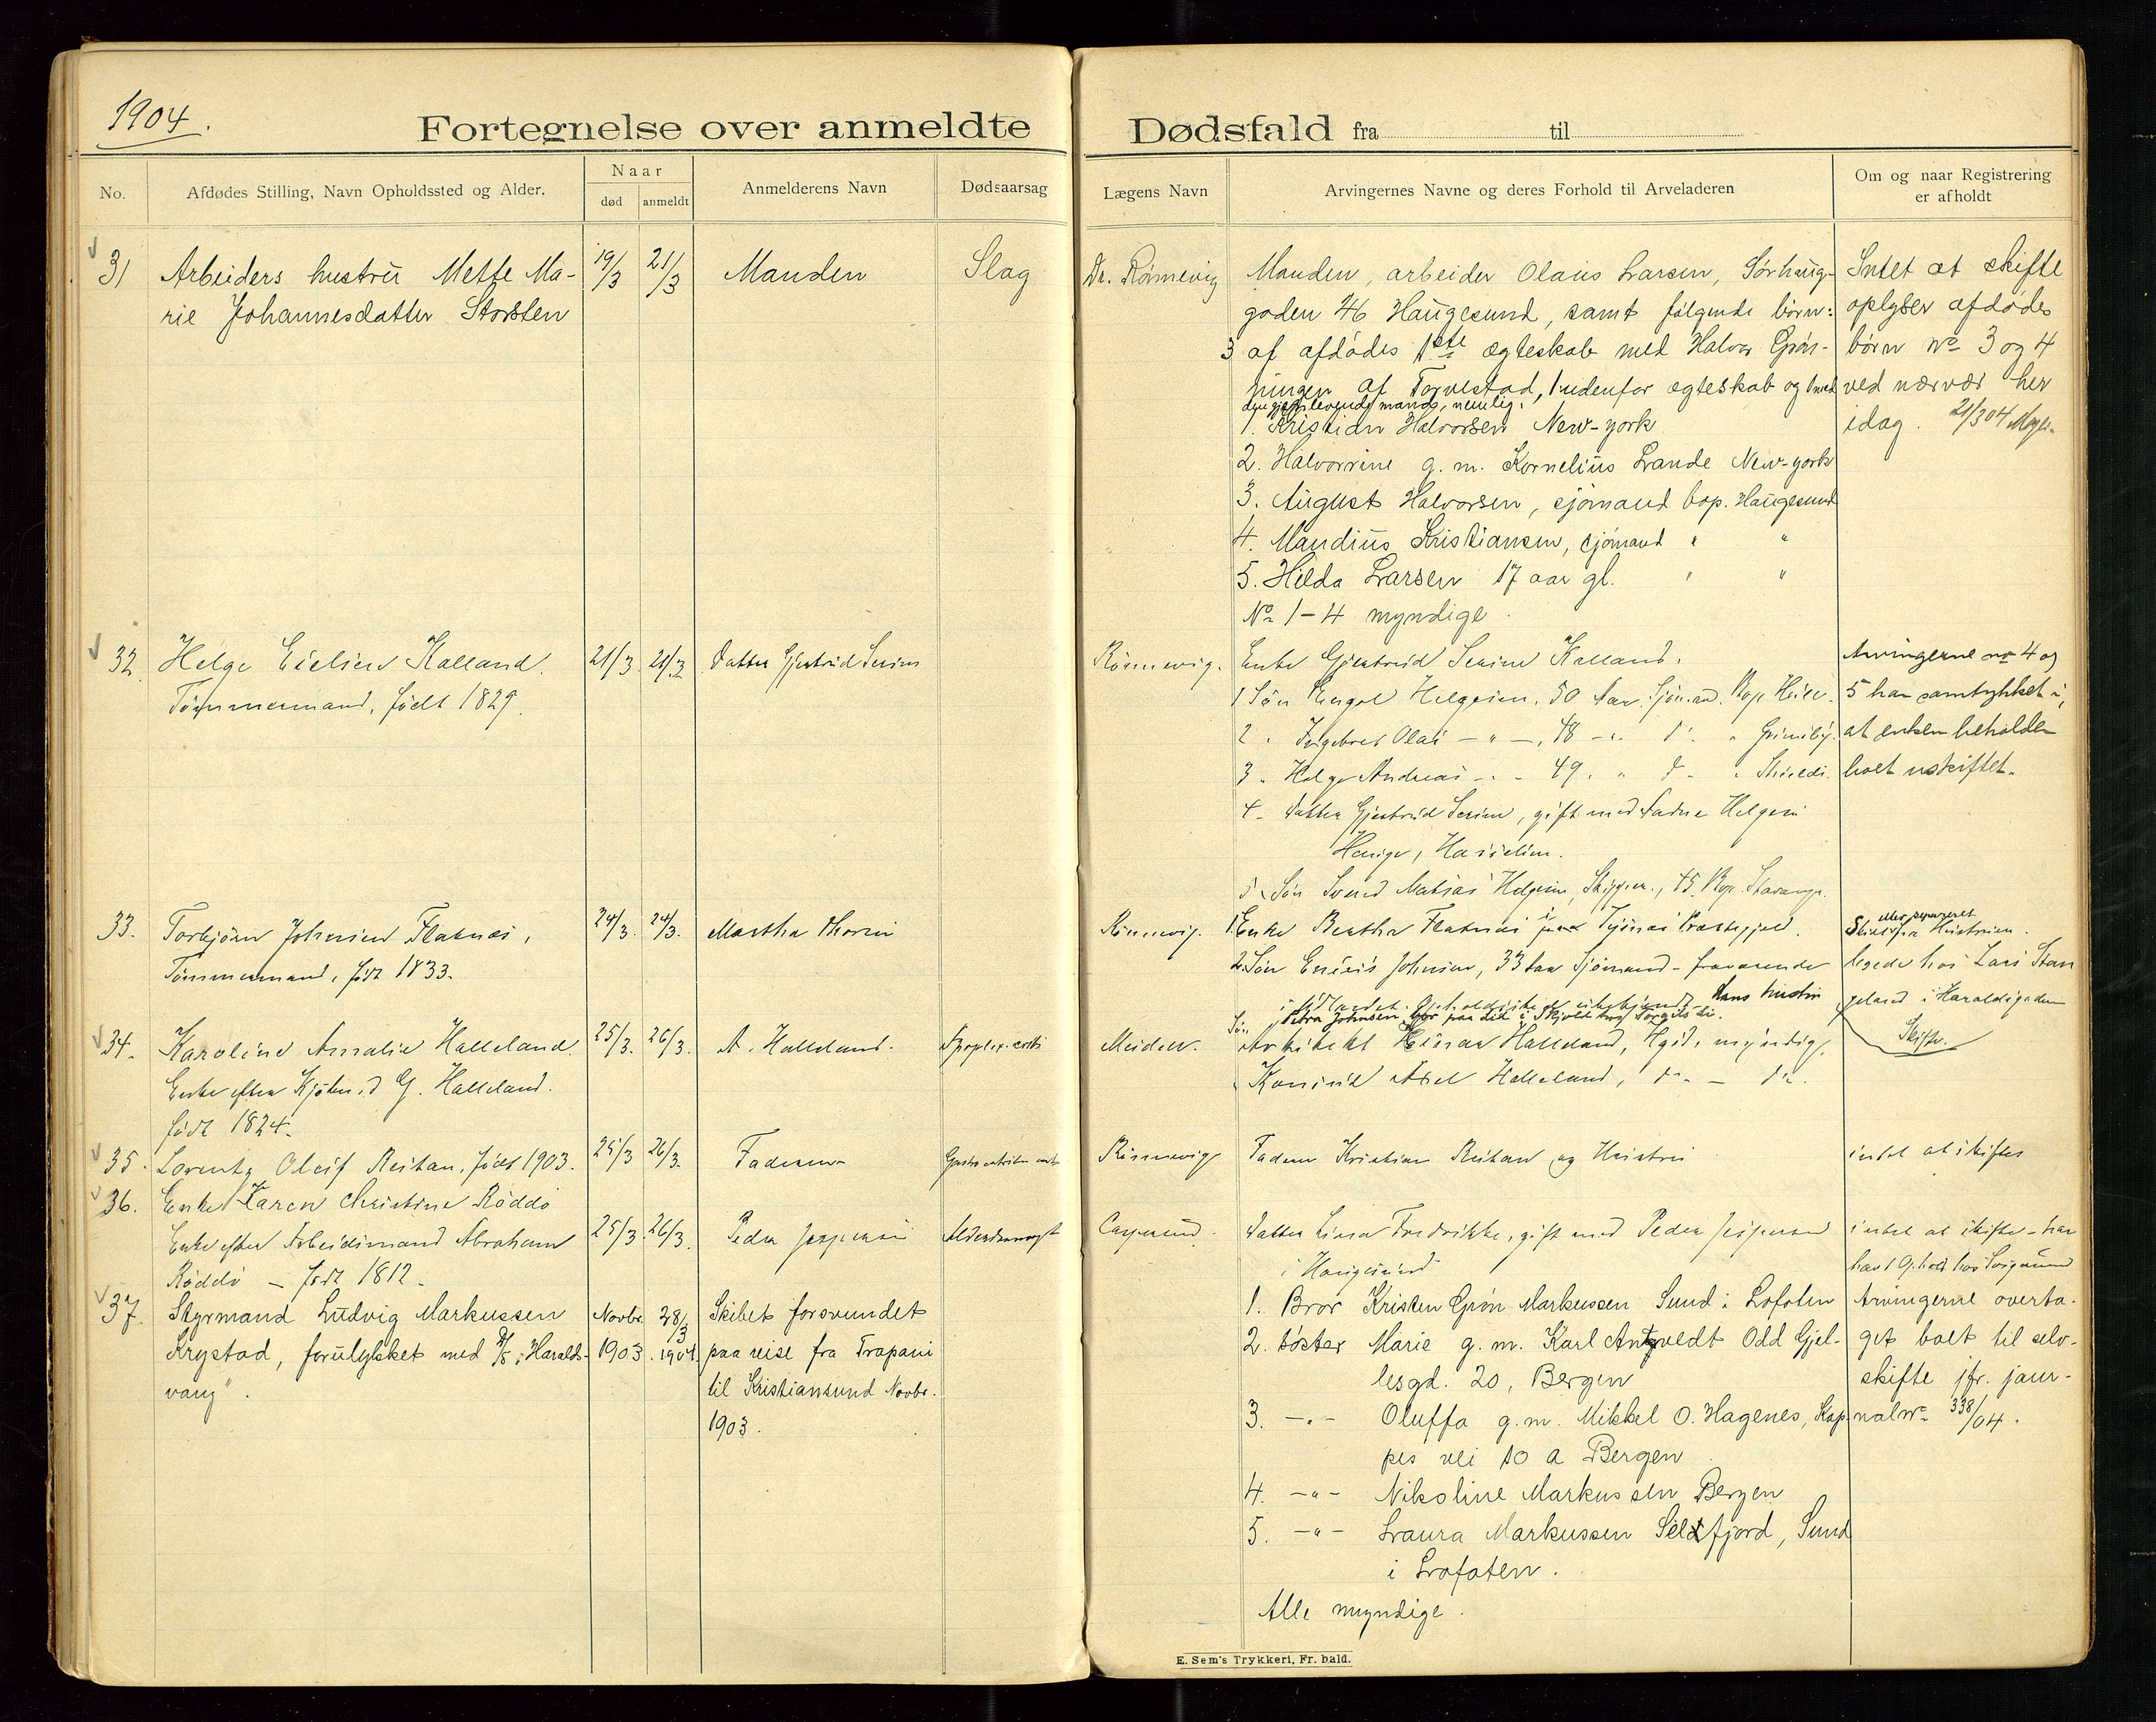 1904.
Fortegnelse over anmeldte Dødsfald fra til
No.
Afdødes Stilling, Navn Opholdssted og Alder.
Naar
død
anmeldt
Anmelderens Navn
Dødsaarsag
Lægens Navn
Arvingernes Navne og deres Forhold til Arveladeren
Om og naar Registrering
er afholdt
31
Arbeiders hustru Mette Ma-
rie Johannesdatter Storsten
19/3
21/3
Manden
Slag
Dr. Rönnevig
Manden, arbeider Olaus Larsen, Sörhaug-
gaden 46 Haugesund, samt følgende börn:
3 af afdödes 1ste egteskab med Halvor Grön-
ningen af Torvestad, 1 udenfor egteskab og 1 med
den gjenlevende mand, nemlig:
1. Kristian Halvorsen New-york
2. Halvorrine g. m. Kornelius Lande New-york
3. August Halvorsen, sjömand bop. Haugesund
4. Mandius Kristiansen, sjömand " "
5. Hilda Larsen 17 aar gl. " "
No 1-4 myndige.
Intet at skifte
oplyser afdödes
börn No 3 og 4
ved nærvær her
idag. 21/3 04
32.
Helge Eielsen Kalland.
Tömmermand, født 1829.
21/3.
21/3
Datter Gjertrud Serine
Rönnevig.
Enke Gjertrud Serine Kalland.
1 Sön Helgesen, 50 Aar. Sjömand. Bop.
2 " Ingebret Olai - " -, 48
3 " Helge Andreas - " - 49
4. Datter Gjertrud Serine, gift med Helgesen
Hauge,
5. Sön Svend Matias Helgesen, Skipper, 45. Bop. Stavanger
Arvingerne no 4 og
5 har samtykket i,
at enken beholder
boet uskiftet.
33.
Torbjörn Johnsen Flatnæs,
Tömmermand, født 1833.
24/3.
24/3.
Martha Thorsen
Rönnevig.
1. Enke Bertha Flatnæs i Tysnæs Præstegjeld.
2. Sön Johnsen, 33 Aar Sjömand - fraværende
i Udlandet. Opholdssted ubekjendt - hans hustru
Petra Johnsen bor i Skjold
eller separeret
Skilt fra Hustruen.
boede hos Lars Stan
geland i Haraldsgaden
Skifte.
34.
Karoline Amalie Halleland.
Enke efter Kjöbmd G. Halleland.
født 1824.
25/3.
26/3.
A. Halleland.
Meidell.
Sön
Arkitekt Halleland, Hgsd. myndig,
Konsul Axel Halleland, do. - do.
35.
Lorentz Oleif Reitan, født 1903.
25/3
26/3.
Faderen
Rönnevig
Fader Kristian Reitan og Hustru
intet at skifte
36.
Enke Karen Christine Röddö
Enke efter Arbeidsmand Abraham
Röddö - født 1812.
25/3
26/3.
Peder Jespersen
Alderdomssvagh
Caspersen.
Datter Fredrikke, gift med Peder Jespersen
i Haugesund
intet at skifte - har
37.
Styrmand Ludvig Markussen
Krystad, forulykket med D/S "Haralds-
vang".
Novbr.
1903
28/3
1904.
Skibet forsvundet
paa reise fra Trapani
til Kristiansund Novbr.
1903.
1. Bror Kristen Grön Markussen Sund i Lofoten
2. söster Marie g. m. Karl Antvedt Odd Gjel-
lesgd. 20, Bergen
3. - " - Oluffa g. m. Mikkel O. Hagenes, Kap-
pes vei 10 a Bergen
4. - " - Nikoline Markussen Bergen
5. - " - Laura Markussen Selfjord, Sund
i Lofoten.
Alle myndige.
Arvingerne overta-
get boet til selv-
skifte jfr. jour-
nal No 338/04.
E. Sem's Trykkeri, Fr. hald.